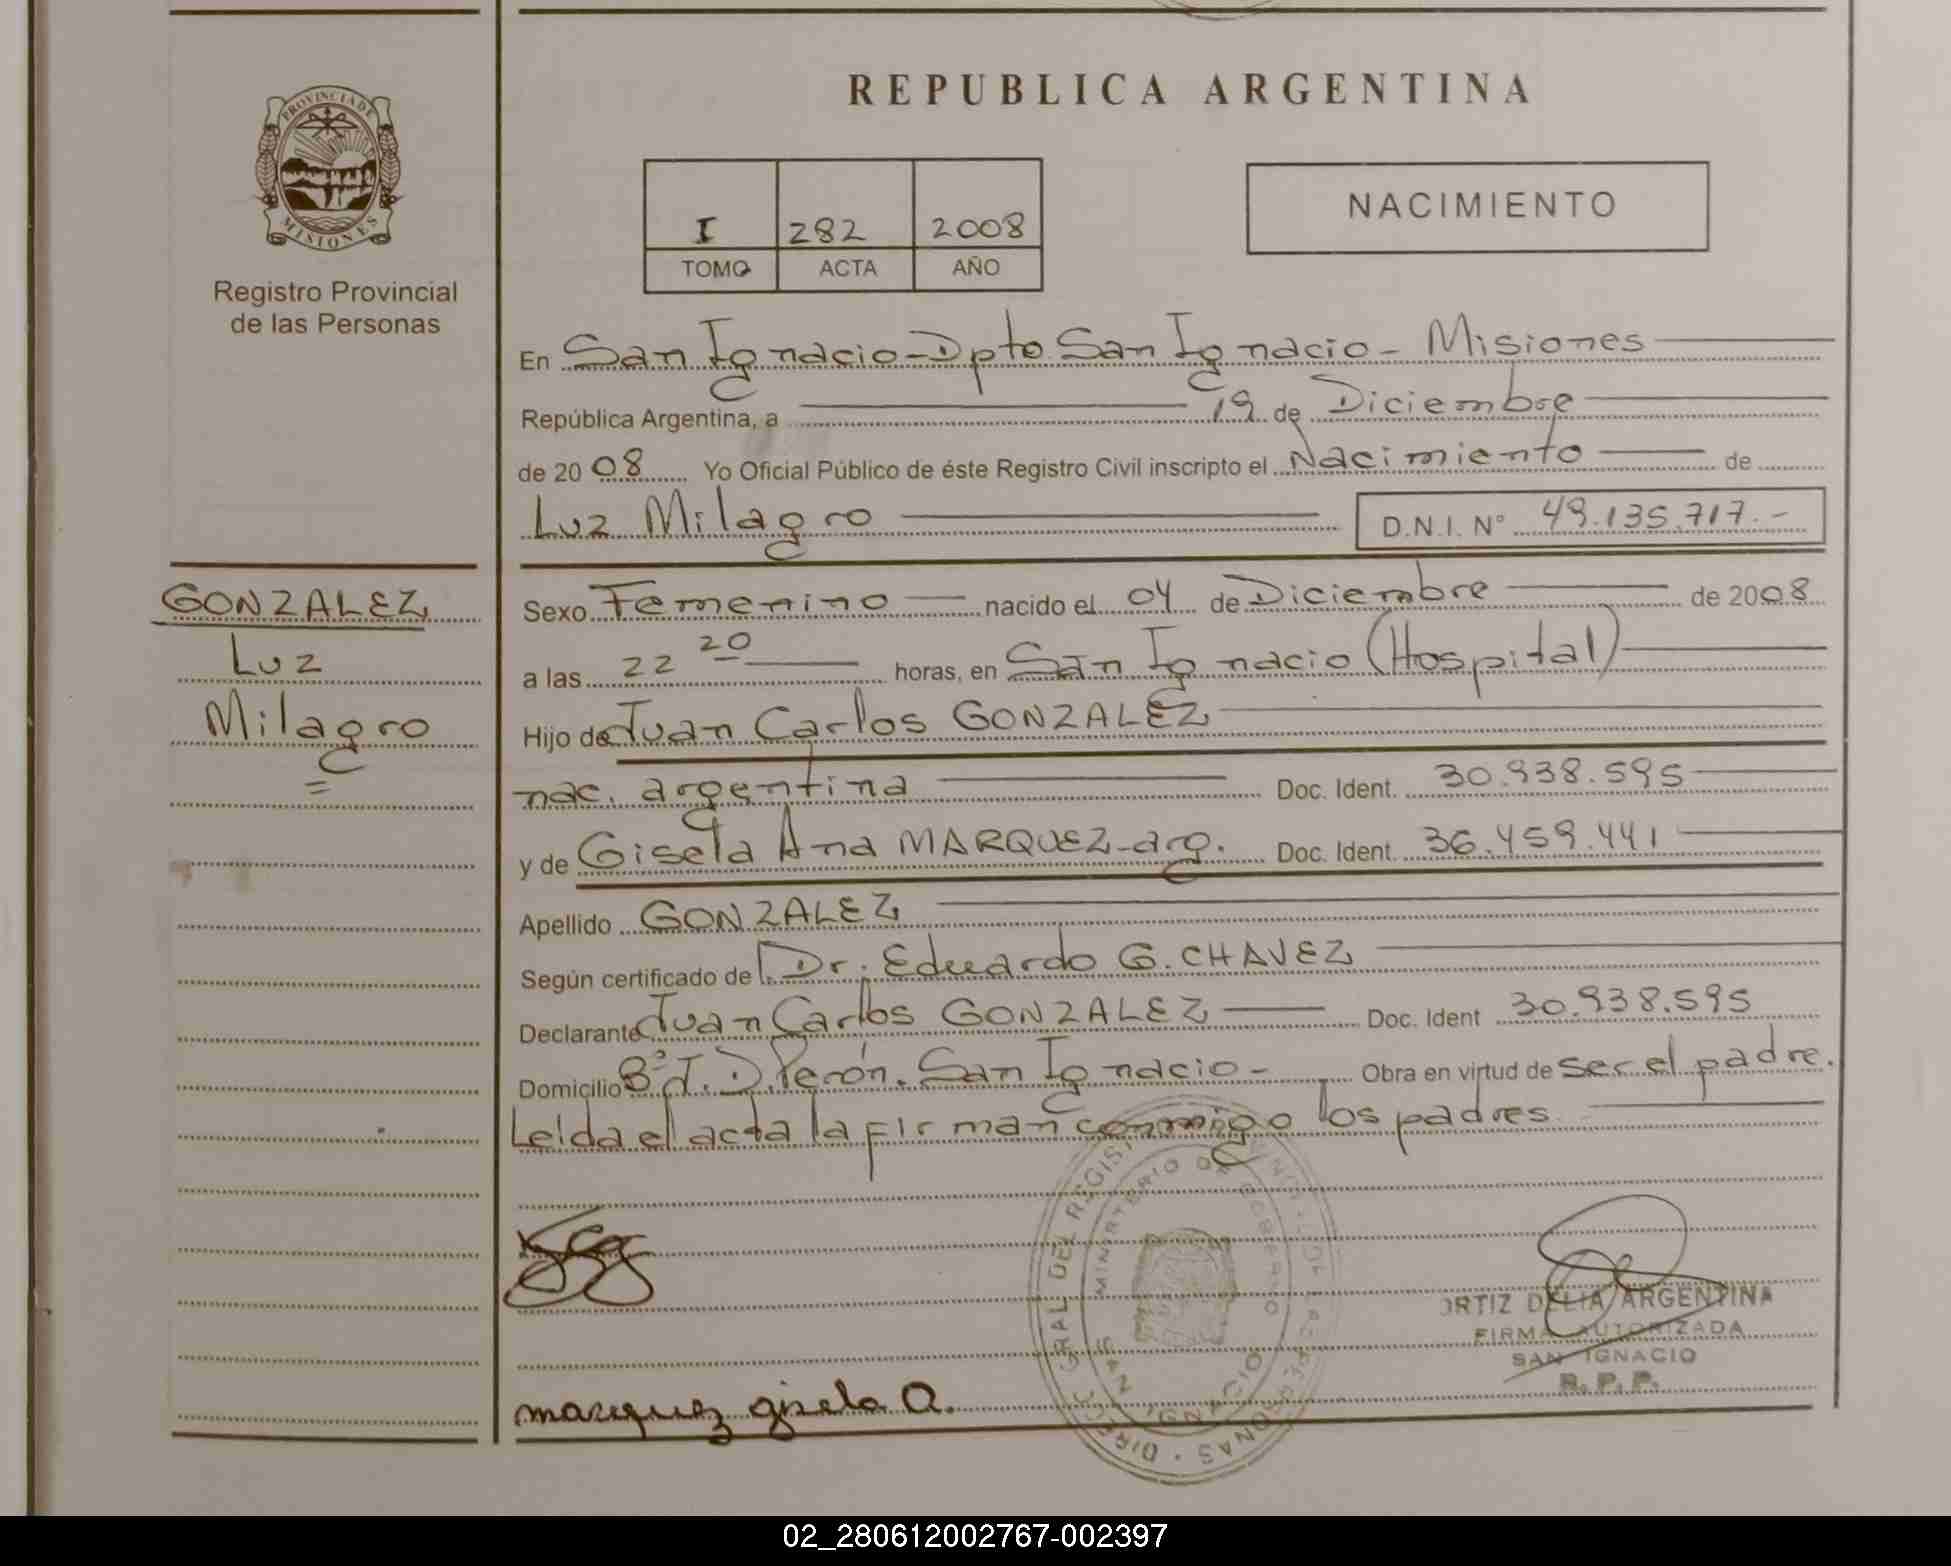 REPUBLICA ARGENTINA
PROVINCIA DE MISIONES
Registro Provincial
de las Personas
I 282 2008
TOMO ACTA AÑO
NACIMIENTO
En San Ignacio-Dpto. San Ignacio- Misiones
República Argentina, a 19 de Diciembre
de 2008 Yo Oficial Público de éste Registro Civil inscripto el Nacimiento de
Luz Milagro D.N.I. N° 49.135.717.-
GONZALEZ
Luz
Milagro
Sexo Femenino nacido el 04 de Diciembre de 2008
a las 22 20 horas, en San Ignacio (Hospital)
Hijo de Juan Carlos GONZALEZ
nac. argentina Doc. Ident. 30.938.595
y de Gisela Ana MARQUEZ-arg. Doc. Ident. 36.459.441
Apellido GONZALEZ
Según certificado de Dr. Eduardo G. CHAVEZ
Declarante Juan Carlos GONZALEZ Doc. Ident 30.938.595
Domicilio B° J. D. Perón. San Ignacio- Obra en virtud de ser el padre.
Leída el acta la firman conmigo los padres
MINISTERIO DE GOBIERNO
SAN IGNACIO
ORTIZ DELIA ARGENTINA
FIRMA AUTORIZADA
SAN IGNACIO
R.P.P.
marquez gisela A.
02_280612002767-002397